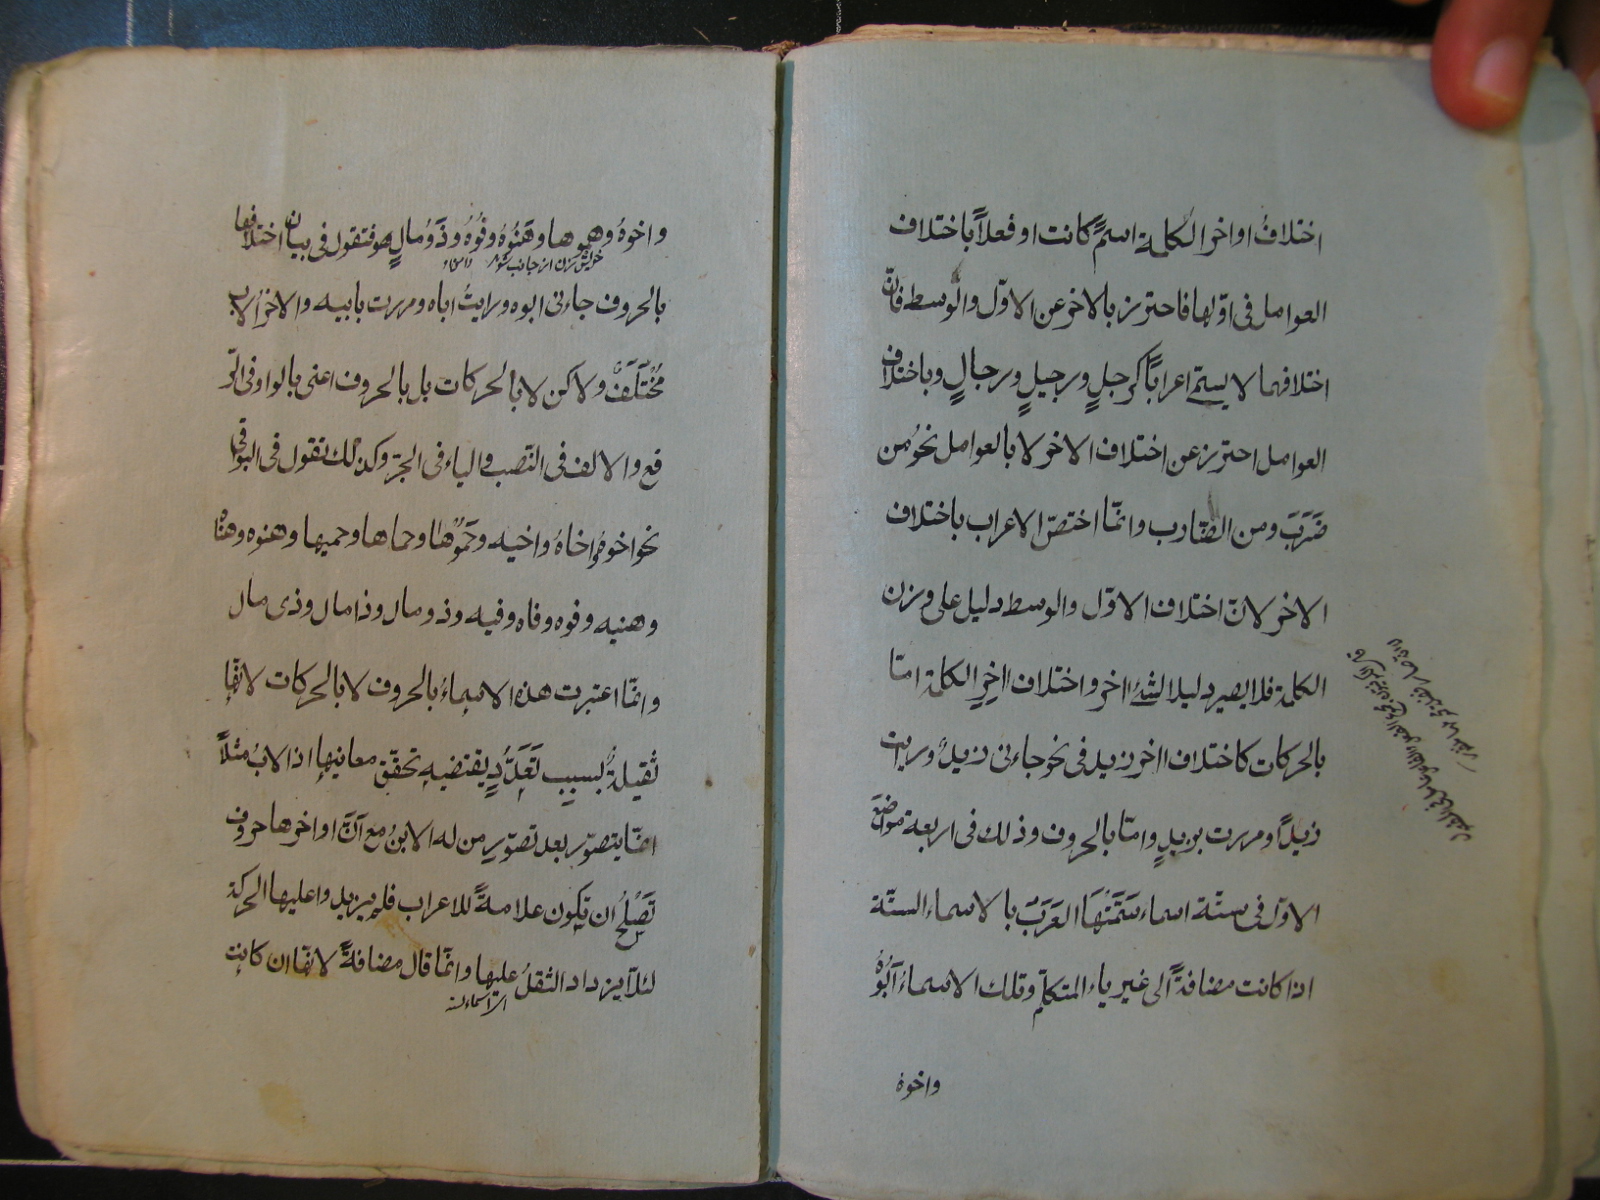 اختلافُ اواخر الكلمة اسمً كانت او فعلاً باختلاف
العوامل فى اوّلها فاحترز بالاخر عن الاوّل والوسط فانّ
اختلافهما لا يسمّى اعراباً كرجلٍ ورجيلٍ ورجالٍ وباختلاف
العوامل احترز عن اختلاف الاخر لا بالعوامل نحو من
ضَرَبَ ومن الضّارب وانّما اختصّ الاعراب باختلاف
الاخر لانّ اختلاف الاوّل والوسط دليل على وزن
الكلمة فلا يصير دليلا لشئ اخر واختلاف اخرِ الكلمة امّا
بالحركات كاختلاف اخر زيد فى نحو جاءنى زيدٌ ورايت
زيداً ومررت بزيدٍ وامّا بالحروف وذلك فى اربعة مواضع
الاوّل فى ستّة اسماء سَمَّتْهَا العَرَبَ بالاسماء الستّة
اذا كانت مضافةً الى غير ياء المتكلّم وتلك الاسماءُ اَبُوهُ
واخوهُ
واخوهُ وحموها وهَنُوهُ وفُوهُ وذُو مالٍ فتقول فى بيان اختلافها
خويش زن از جانب شوهر
بالحروف جاءنى ابوه ورايتُ اباه ومررت بابيه والاخر الاب
مُخْتَلَفٌ ولاكن لا بالحركات بل بالحروف اعنى بالواو فى الرّ
فع والالف فى النّصب والياء فى الجرّ وكذلك تقول فى البواقى
نحو اخوهُ واخاهُ واخيه وحَمُوها وحماها وحميها وهنوه وهناه
وهنيه وفوه وفاه وفيه وذو مال وذا مال وذى مال
وانّما اعتبرت هذه الاسماءُ بالحروف لا بالحركات لانّها
ثقيلةٌ بسببِ تَعَدُّدٍ يقتضيه تحقّق معانيها اذ الابُ مثلاً
انّما يتصوّر بعد تصوّرِ من له الابنُ مع اَنَّ اواخرها حروف
تَصْلُحُ ان يكون علامةً للاعراب فلم يزيدوا عليها الحركة
لئلّا يزداد الثقلُ عليها وانّما قال مضافةً لانّها ان كانت